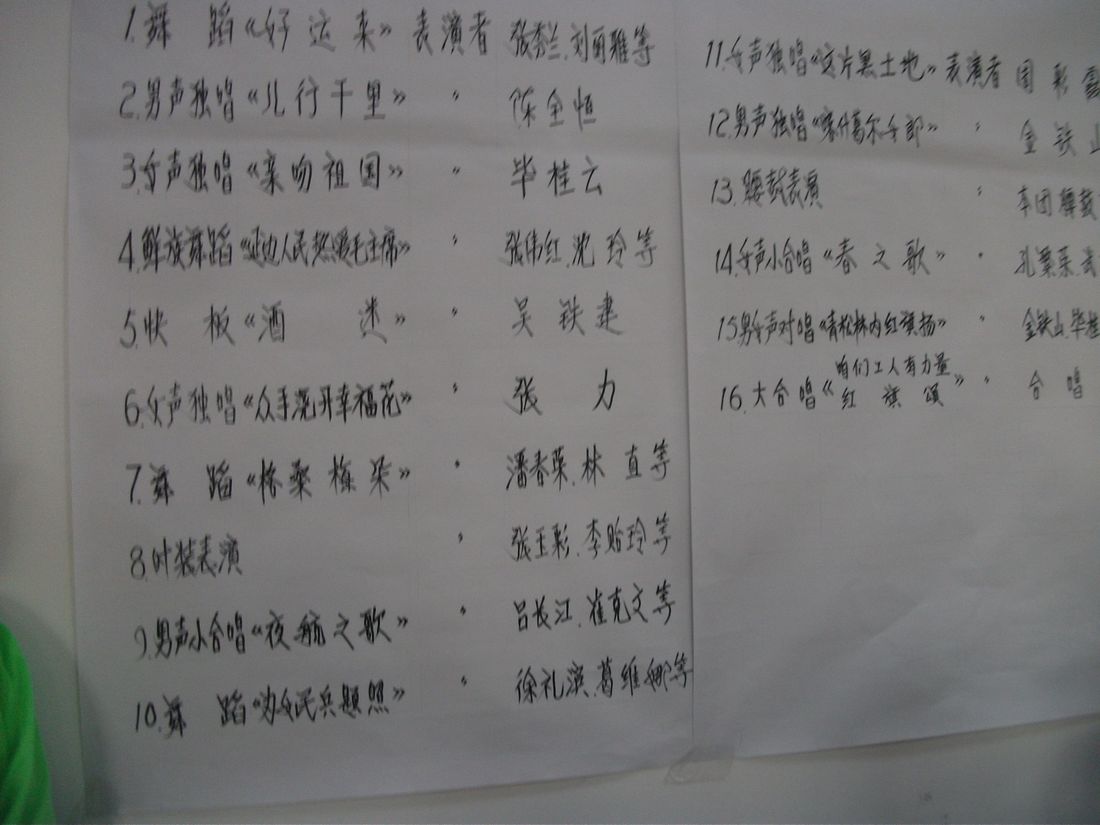 1.舞 蹈《好运来》表演者 张秀兰.刘丽雅等
2.男声独唱《儿行千里》 〃 陈全恒
3.女声独唱《亲吻祖国》 〃 毕桂云
4.鲜族舞蹈《延边人民热爱毛主席》 〃 张伟红.沈玲等
5.快 板《酒 迷》 〃 吴铁建
6.女声独唱《众手浇开幸福花》 〃 张 力
7.舞 蹈《格桑梅朵》 〃 潘春荣.林 直等
8.时装表演 〃 张玉彩.李贻玲等
9.男声小合唱《夜航之歌》 〃 吕长江.崔克文等
10.舞 蹈《为女民兵题照》 〃 徐礼滨.葛维娜等
11.女声独唱《这片黑土地》表演者 国彩
12.男声独唱《喀什葛尔女郎》 〃 金铁山
13.腰鼓表演 〃 本团腰鼓
14.女声小合唱《春之歌》 〃 孔繁荣.
15.男女声对唱《青松林内红旗扬》 〃 金铁山.毕桂
16.大合唱《咱们工人有力量
红旗颂》 〃 合唱